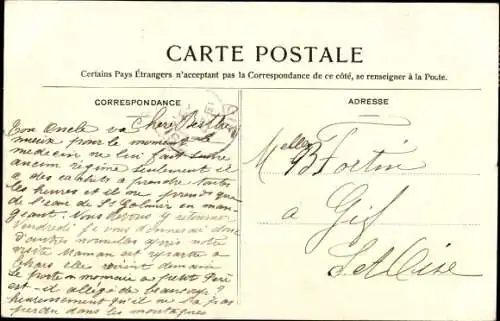 CARTE POSTALE
Certains Pays Étrangers n'acceptant pas la Correspondance de ce côté, se renseigner à la Poste.
CORRESPONDANCE
ADRESSE
Chère Berthe
Ton Oncle va
mieux pour le moment le
medecin ne leu fait suivre
aucun régime seulement il
a des cachets a prendre toutes
les heures et il ne prends que
de l'eau de St Galmier en man-
geant. Nous devons y retourner
Vendredi je vous donnerai donc
d'autres nouvelles après notre
visite Maman est repartie a
elle revient demain
Le porte monnaie a petit Père
est-il allégé de beaucoup?
heureusement qu'il ne l'a pas
perdu dans les montagnes
Melle B Fortin
a Gif
S et Oise